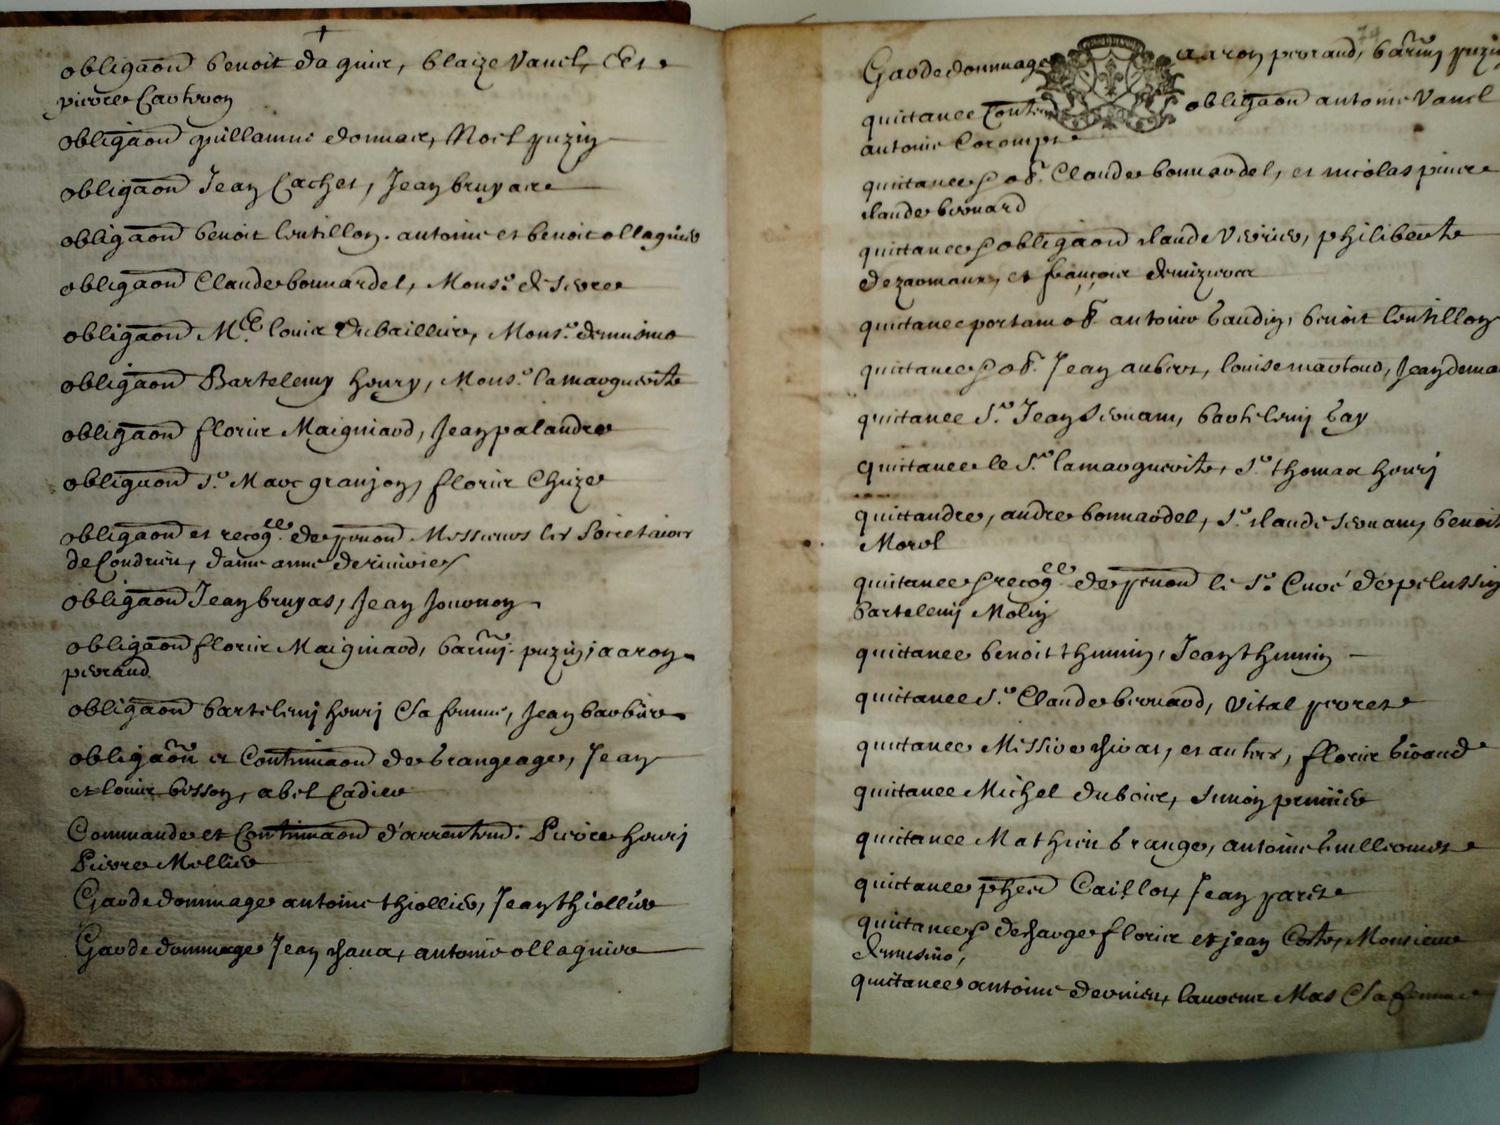 obligaōn benoit daguin, blaize Vanel, Et
pierre Cautron
obligaōn guillaume donnat, Noel puzin
obligaōn Jean Cachet, Jean bruyare
obligaōn benoit lentillon, antoine et benoit ollagnier
obligaōn Claude bonnardel, Mons.r de
obligaōn M.e louis dubaillier, Mons.r
obligaōn Bartelemy henry, Mons.r lamarguerite
obligaōn florie Maigniard, Jean palandre
obligaōn S.r Marc granjon, florie Chize
obligaōn et recog.ce de Messieurs les Societaires
de Condrieu, dame anne
obligaōn Jean bruyas, Jean Jouvenon
obligaōn florie Maigniard, puzin, aaron
peyraud
obligaōn bartelemy henrj & sa femme, Jean barbier
obligaōn et Continuaōn de brangeage, Jean
et louis besson, abel Cadier
Commande et Continuaōn d'arrentem.t Pierre henrj
Pierre Mellier
Garde dommage antoine thiollier, Jean thiollier
Garde dommage Jean chaux, antoine ollagnier
Garde dommage aaron peyraud, puzin
quictance Contre obligaōn antoine Vanel
antoine Corompt
quictance p ob. Claude bonnardel, et nicolas pierre
claude brouard
quictance p obligaōn claude Verrier, philiberte
et françois
quictance portant ob. antoine baudin, benoit lentillon
quictance p ob. Jean aubert, louise
quictance S.r Jean Servant, barthelemy bay
quictance le S.r lamarguerite, S.r thomas henrj
quictandre, andre bonnardel, S.r claude Servant, benoit
Morel
quictance p recog.ce de le S.r Curé de pelussin
bartelemj Molin
quictance benoit thimin, Jean thimin
quictance S.r Claude brouard, Vital peret
quictance et autres, florie
quictance Michel dubois, Simon
quictance Mathieu brange, antoine
quictance Caillot, Jean paret
quictance p descharge florie et jean Coste, Monsieur

quictance antoine dervieu, laurent Mas & sa femme